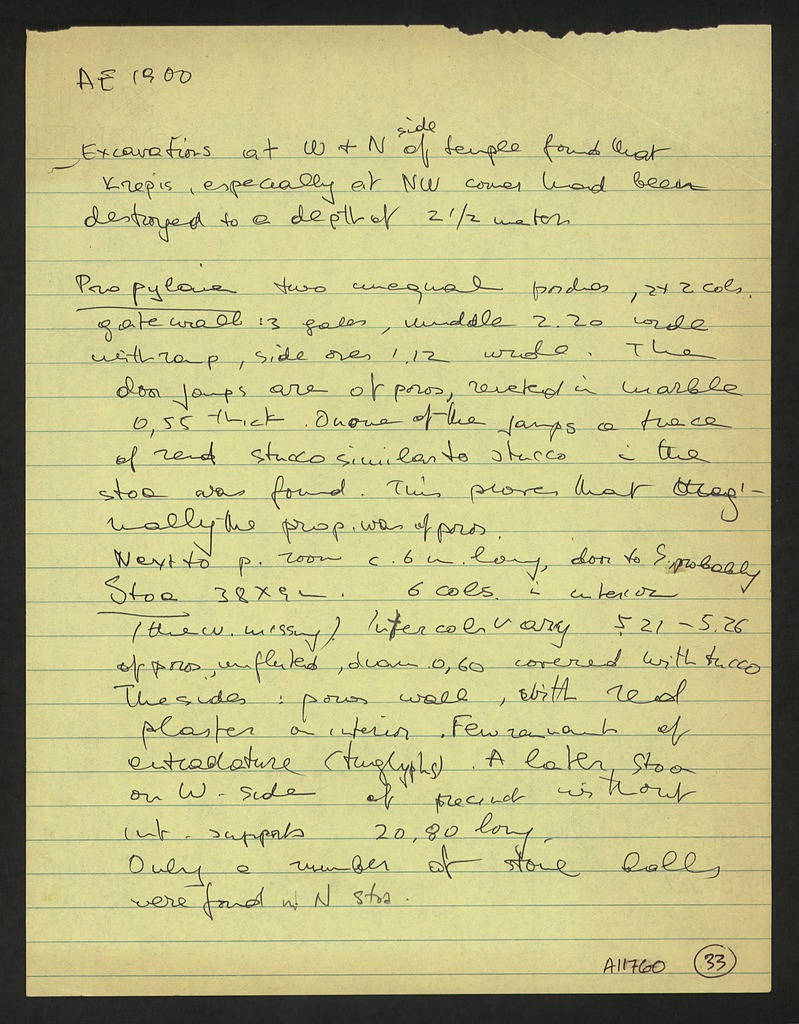 AE 1900
Excavations at W + N side of temple found that
Krepis, especially at NW corner had been
destroyed to a depth of 2 1/2 meters
Propylaia two unequal porches, 2x2 cols.
gate wall :3 gates, middle 2.20 wide
with ramp, side ones 1.12 wide. The
door jamps are of poros, reveted in marble
0,55 thick. On one of the jamps a trace
of read stucco similar to stucco in the
stoa was found. This proves that origi-
nally the prop. was of poros.
Next to p. room c. 6 m. long, door to S. probably
Stoa 38x9 m. 6 cols. in interior
(the w. missing). Intercols vary 5.21 - 5.26
of poros, unfluted, diam 0,60 covered with stucco
The sides : poros wall, with read
plaster on interior. Few remnants of
entradature (triglyphs). A later stoa
on W-side of precinct without
int. supports 20,80 long.
Only a number of stone balls
were found in N stoa.
A11760 33